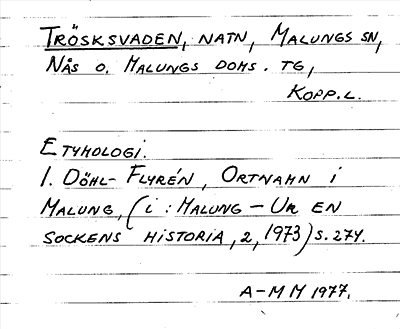 TRÖSKSVADEN, NATN, MALUNGS SN,
NÅS O. MALUNGS DOMS. TG,
KOPP.L.
ETYMOLOGI.
1. DÖHL-FLYRÉN, ORTNAMN I
MALUNG, (i: MALUNG – UR EN
SOCKENS HISTORIA, 2, 1973) S. 274.
A-M M 1977.